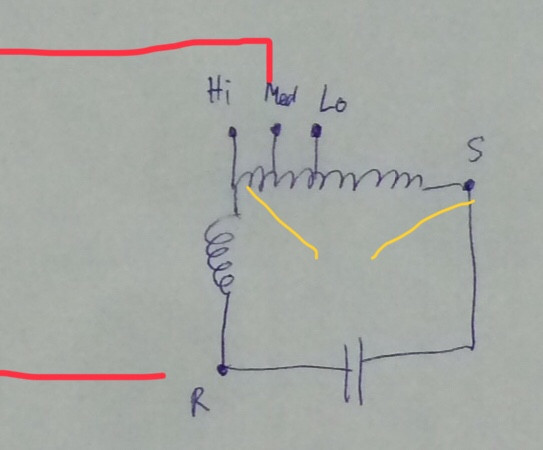 Hi Med Lo
S
R